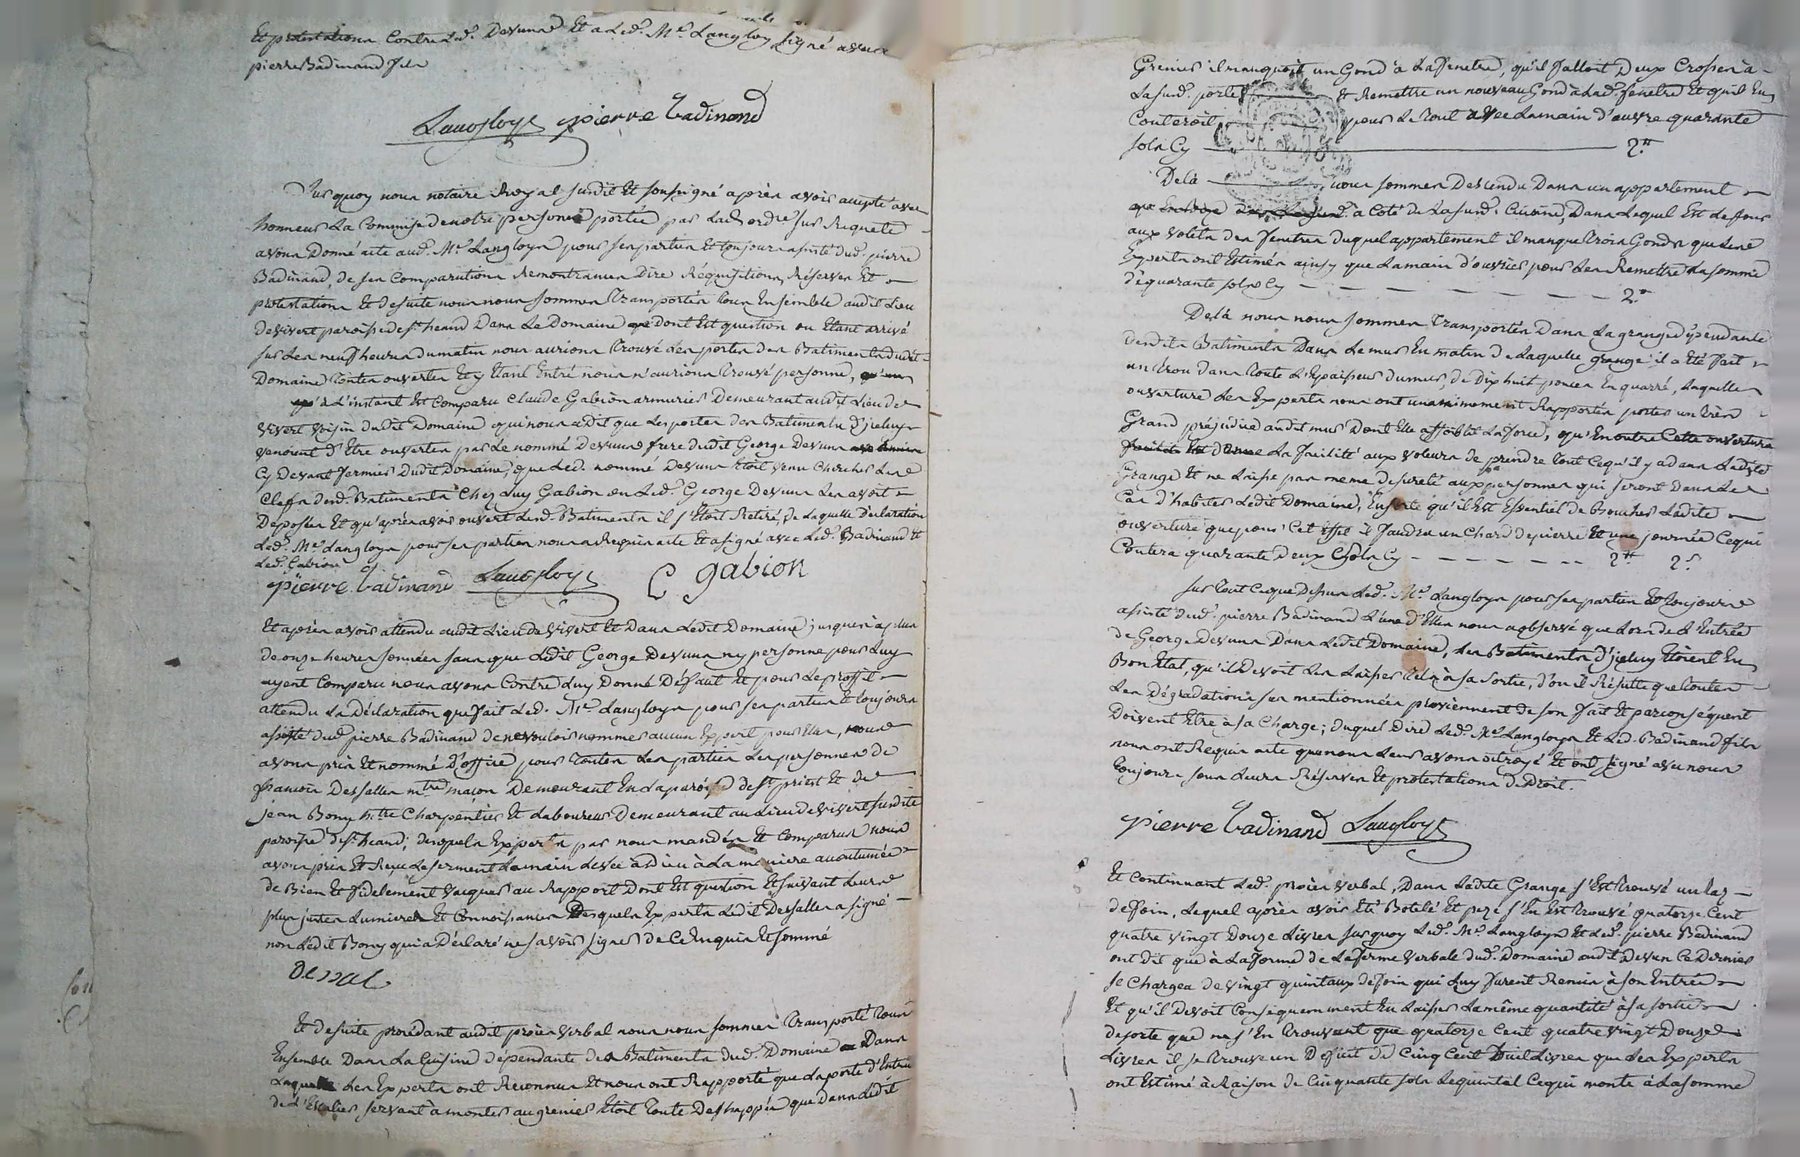 Et protestations Contre Led. Devuns Et a Led. Me. Langloys signé avec
pierre Badinand fils
Langloys pierre badinand
Sur quoy nous notaire Royal susdit Et soussigné après avoir accepté avec
honneur La Commise de notre personne portée par Lad. ordre Sur Requete
avons Donné acte aud. Me. Langloys pour ses parties Et toujours assisté dud. pierre
Badinand, de ses Comparutions Remontrances Dire Réquisitions Réserves Et
protestations Et de suitte nous nous sommes transportés tous Ensemble audit Lieu
de Vivert paroisse de St. heand Dans Le Domaine dont Est question ou Etant arrivé
sur Les neuf heures du matin nous aurions trouvé Les portes des Batiments dudit
Domaine toutes ouvertes Et y Etant Entré nous n'aurions trouvé personne,
a L'instant Est Comparu Claude Gabion armurier Demeurant audit Lieu de
Vivert voisin dudit Domaine qui nous a dit que Les portes des Batiments d'jceluy
venoient d'Etre ouvertes par Le nommé Devuns frere dudit George Devuns
Cy Devant fermier Dudit Domaine, que Led. nommé Devuns Etoit venu Chercher Les
Cleffs desd. Batiments Chez Luy Gabion ou Led. George Devuns Les avoit
Déposées Et qu'après avoir ouvert Lesd. Batiments il s'Etoit Retiré, de Laquelle Déclaration
Led. Me. Langloys pour ses parties nous a Requis acte Et a signé avec Led. Badinand Et
Led. Gabion
pierre badinand Langloys C gabion
Et après avoir attendu audit Lieu de Vivert Et Dans Ledit Domaine jusques a plus
de onze heures sonnées sans que Ledit George Devuns ny personne pour Luy
ayent Comparu nous avons Contre Luy Donné Défaut Et pour Le proffit
attendu La Déclaration que fait Led. Me. Langloys pour ses parties Et toujours
assisté dud. pierre Badinand de ne vouloir nommer aucun Expert pour Elles, nous
avons pris Et nommé D'office pour toutes Les parties Les personnes de
francois Dessalles mtre maçon Demeurant En La paroisse de St. priest Et de
jean Bony Charpentier Et Laboureur Demeurant au Lieu de Vivert susdite
paroisse de St. heand; desquels Experts par nous mandés Et Comparus nous
avons pris Et Reçu Le serment La main Levée à Dieu à La maniere accoutumée
de Bien Et fidelement Vacquer au Rapport Dont Est question Et suivant Leurs
plus justes Lumieres Et Connoissances Desquels Experts Ledit Dessalles a signé
non Ledit Bony qui a Déclaré ne savoir signer de Ce Enquis Et sommé
Dessal
Et de suite procédant audit procès verbal nous nous sommes transporté tous
Ensemble Dans La Cuisine dépendante des Batiments dud. Domaine Dans
Laquelle Les Experts ont Reconnus Et nous ont Rapporté que La porte d'Entrée
de L'Escalier servant à monter au grenier Etoit toute Deffrappée que Dans Ledit
Grenier il manquoit un Gond à La fenetre, qu'il falloit Deux Crosses à
La susd. porte Et Remettre un nouveau Gond à Lad. fenetre Et qu'il En
Couteroit pour Le tout avec La main d'œuvre quarante
sols Cy 2 ₶
De Là nous sommes Descendu Dans un appartement
a Coté de La susd. Cuisine, Dans Lequel Est de jour
aux volets des fenetres duquel appartement il manque trois Gonds que Les
Experts ont Estimés ainsy que La main d'ouvrier pour Les Remettre La somme
de quarante sols Cy 2 ₶
De Là nous nous sommes Transportés Dans La grange dépendante
desdits Batiments Dans Le mur En matin de Laquelle grange il a Eté fait
un trou dans toute L'Epaisseur du mur de Dix huit pouces En quarré, Laquelle
ouverture Les Experts nous ont unanimement Rapportés porter un très
Grand préjudice audit mur Dont Elle affoiblit La force, qu'En outre Cette ouverture
donne La facilité aux voleurs de prendre tout Ce qu'il y a dans Ladite
Grange Et ne Laisse pas meme de sureté aux personnes qui seront Dans Le
Cas d'habiter Ledit Domaine, Ensorte qu'il Est Essentiel de Boucher Ladite
ouverture que pour Cet Effet il faudra un Chard de pierre Et une journée Ce qui
Coutera quarante Deux sols Cy 2 ₶ 2 s
Sur tout Ce que Dessus Led. Me. Langloys pour ses parties Et toujours
assisté dud. pierre Badinand L'une d'Elles nous a observé que Lors de L'Entrée
de George Devuns Dans Ledit Domaine, Les Batiments d'jceluy Etoient En
Bon Etat, qu'il Devoit Les Laisser tels à sa Sortie, d'ou il Résulte que toutes
Les Dégradations sus mentionnées proviennent de son fait Et par conséquent
Doivent Etre à sa Charge; Duquel Dire Led. Me. Langloys Et Led. Badinand fils
nous ont Requis acte que nous Leurs avons octroyé Et ont signé avec nous
toujours sous Leurs Réserves Et protestations de Droit.
pierre badinand Langloys
Et Continuant Led. procès verbal, Dans Ladite Grange s'Est trouvé un tas
de foin, Lequel après avoir Eté Botelé Et pezé s'En Est trouvé quatorze Cent
quatre vingt Douze Livres sur quoy Led. Me. Langloys Et Led. pierre Badinand
ont dit que à La forme de La ferme verbale dud. Domaine audit Devuns Ce Dernier
se Chargea de vingt quintaux de foin qui Luy furent Remis à son Entrée
Et qu'il Devoit Consequemment En Laisser La même quantité à sa sortie
de sorte que ne s'En trouvant que quatorze Cent quatre vingt Douze
Livres il se trouve un Deficit de Cinq Cent huit Livres que Les Experts
ont Estimé à Raison de Cinquante sols Le quintal Ce qui monte à La somme